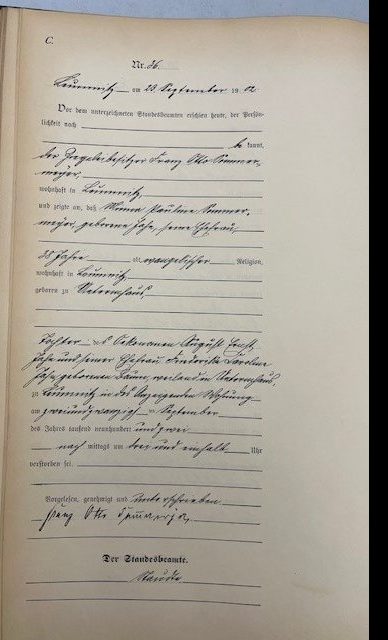 C.
Nr. 86.
Leumnitz am 23. September 1902.
Vor dem unterzeichneten Standesbeamten erschien heute, der Persön-
lichkeit nach
be kannt,
der Ziegeleibesitzer Franz Otto Sommer-
meyer,
wohnhaft in Leumnitz,
und zeigte an, daß Minna Pauline Sommer-
meyer, geborene Jahn, seine Ehefrau,
38 Jahre alt, evangelischer Religion,
wohnhaft in Leumnitz,
geboren zu
Tochter des Oekonomen August Ernst
und seiner Ehefrau Friederike Karoline
geborenen weiland in
zu Leumnitz in des Anzeigenden Wohnung
am zweiundzwanzigsten September
des Jahres tausend neunhundert und zwei
nach mittags um drei und einhalb Uhr
verstorben sei.
Vorgelesen, genehmigt und unterschrieben
Franz Otto Sommermeyer,
Der Standesbeamte.